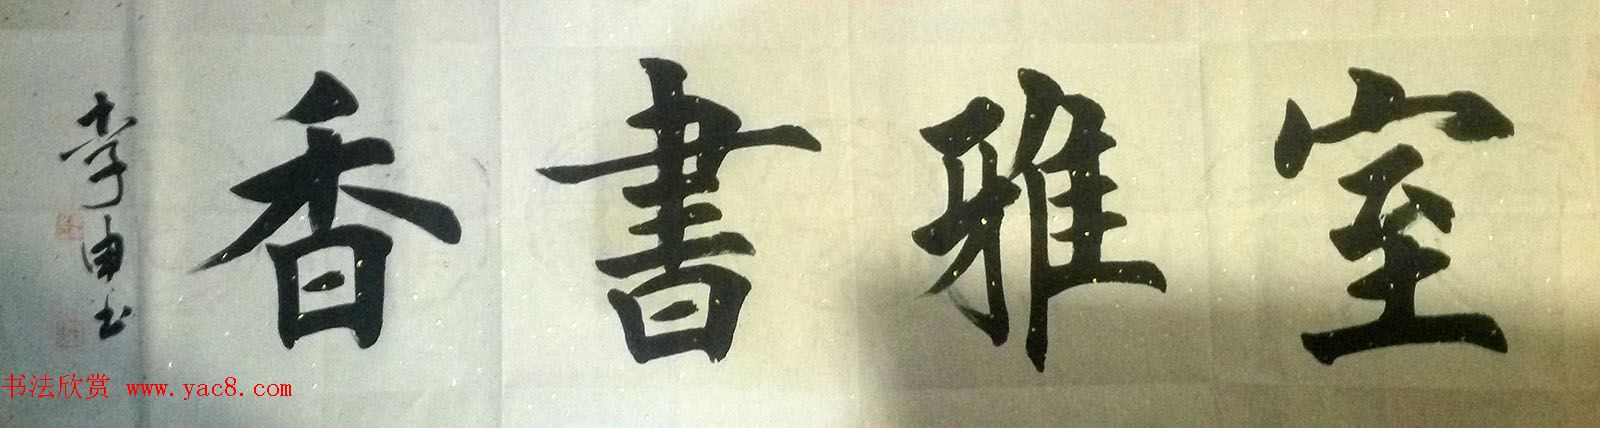 室雅書香
李申书
书法欣赏 www.yac8.com